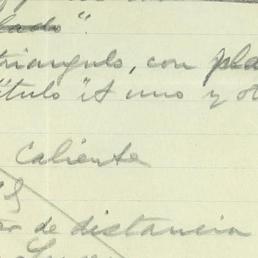 lado".
triangulo, con pla
título "A uno y ot
Caliente
de distancia